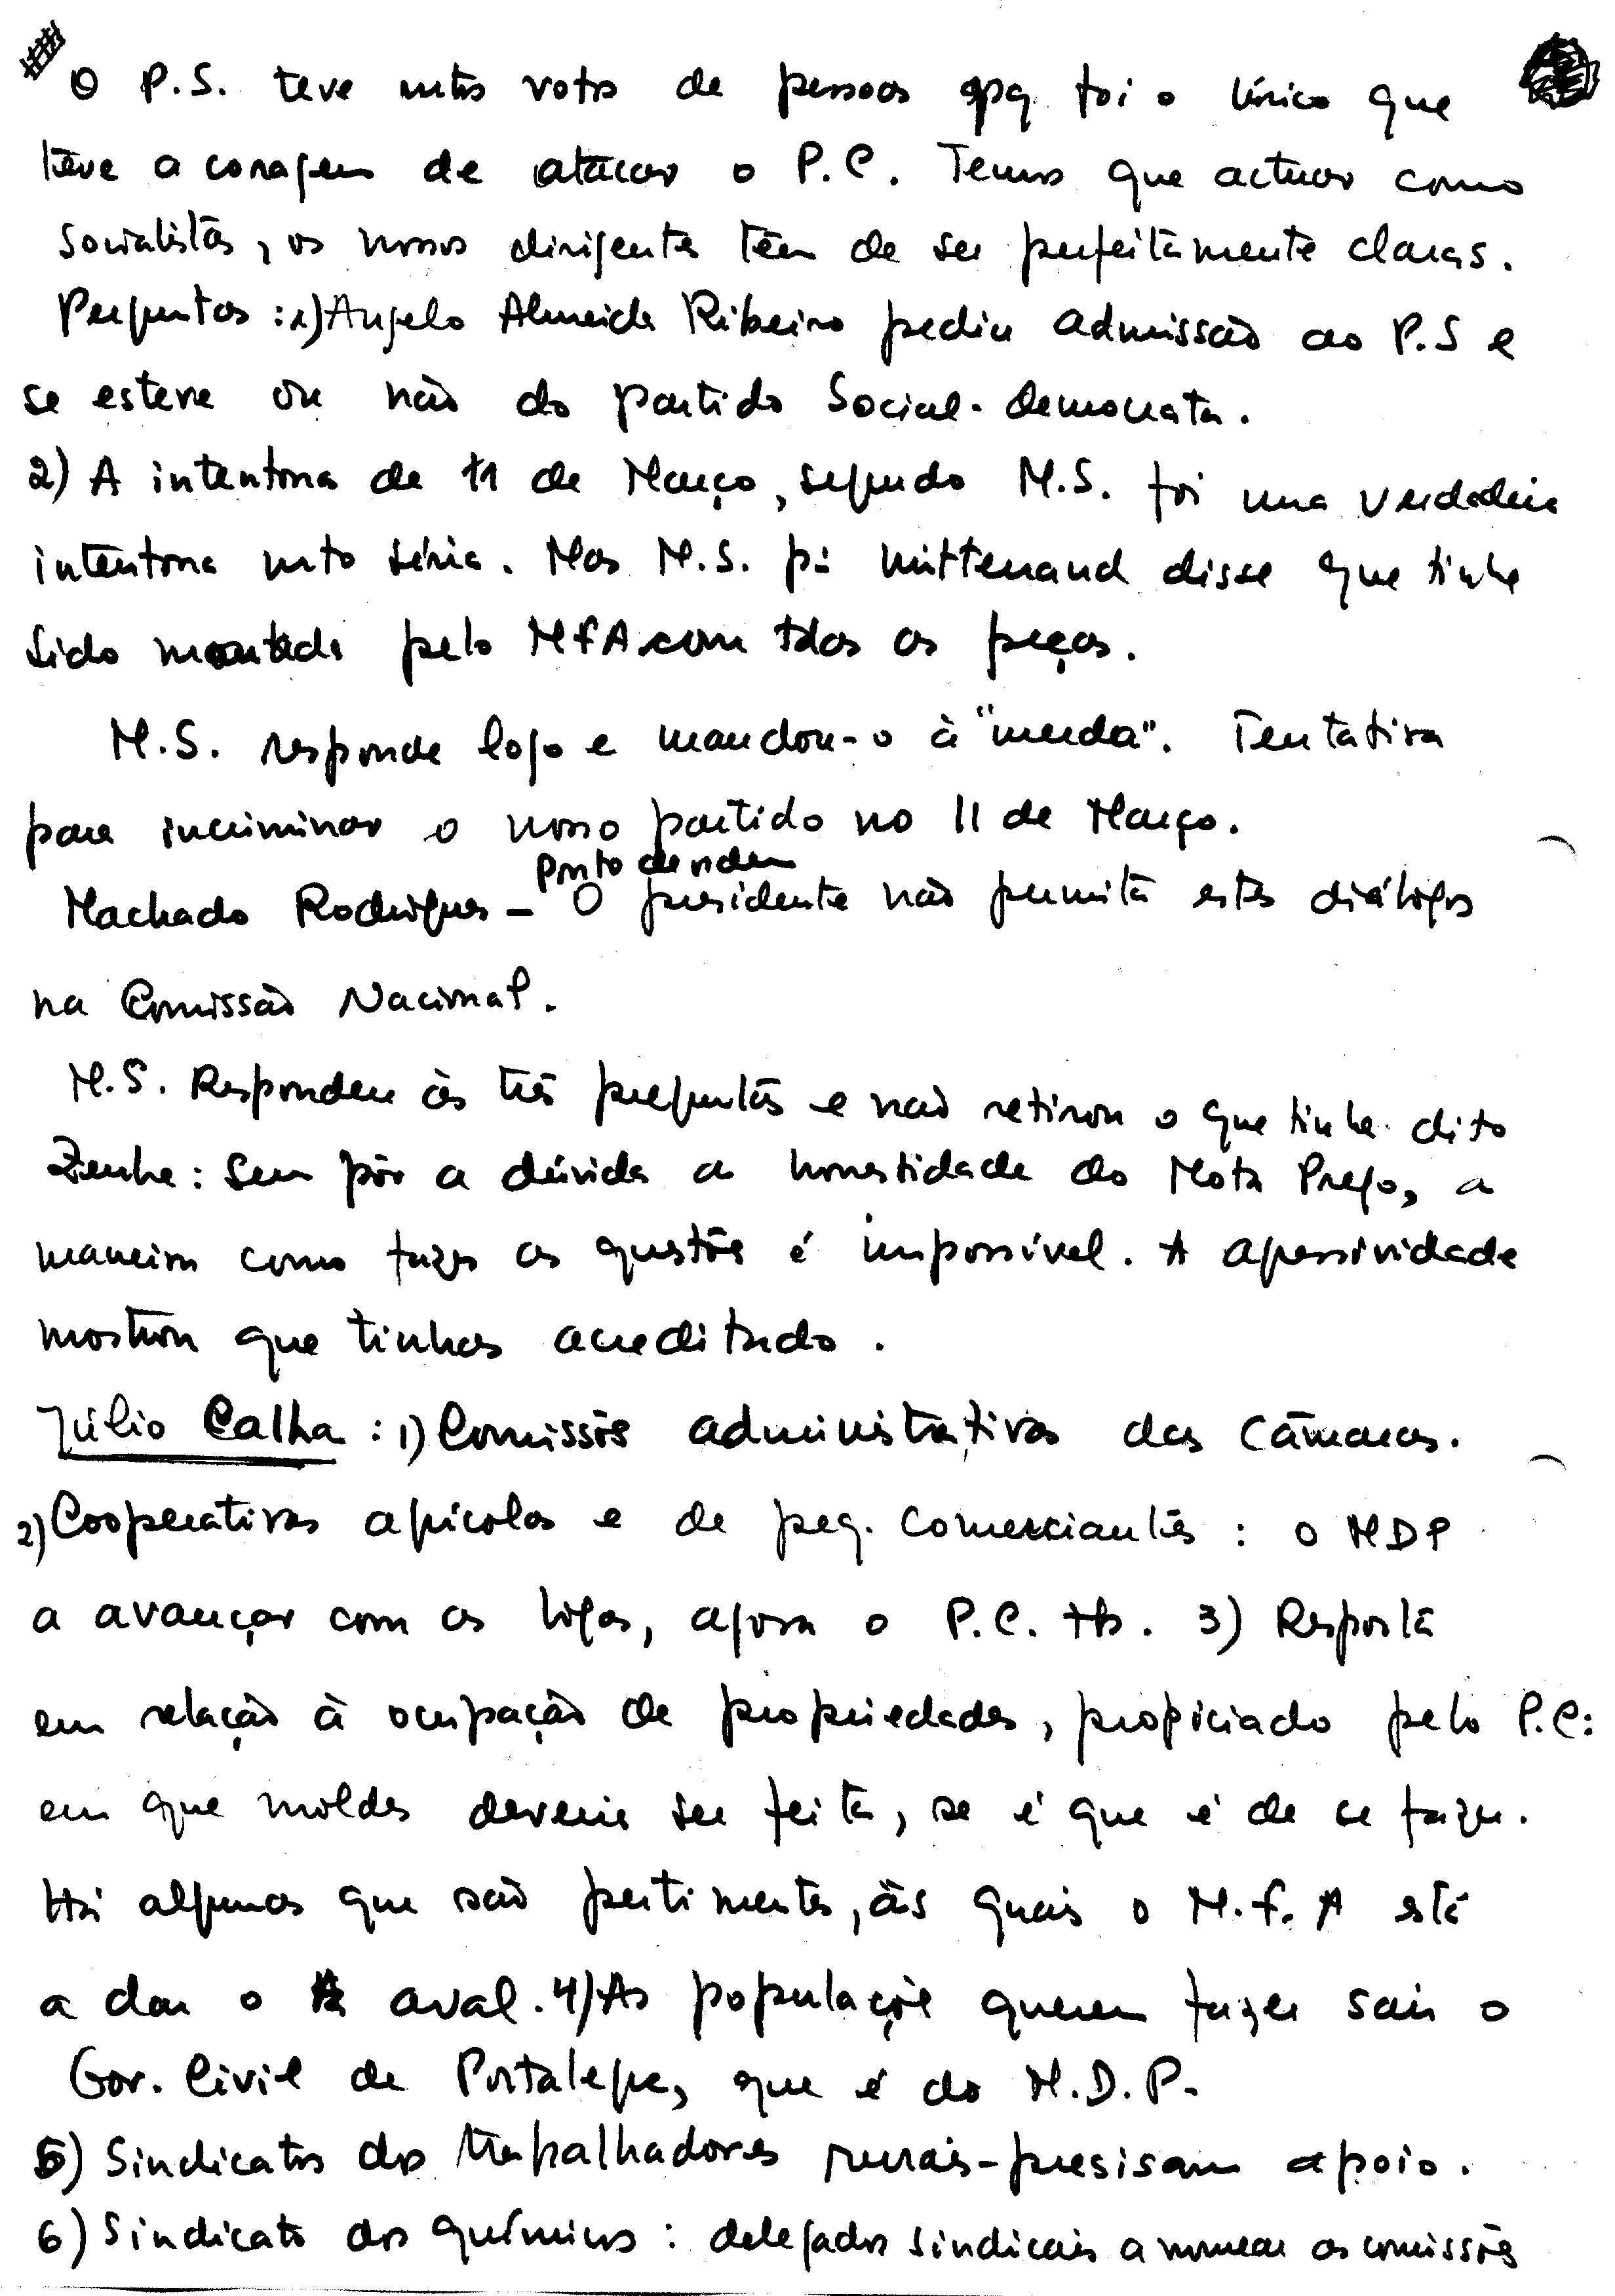 O P.S. teve mtos votos de pessoas pq foi o único que
teve a coragem de atacar o P.C. Temos que actuar como
socialistas, os nossos dirigentes têm de ser perfeitamente claros.
Perguntas: 1) Angelo Almeida Ribeiro pediu admissão ao P.S e
se esteve ou não do partido Social-democrata.
2) A intentona de 11 de Março, segundo M.S. foi uma verdadeira
intentona mto séria. Mas M.S. pª Mitterrand disse que tinha
sido montada pelo MFA com tdas as peças.
M.S. responde logo e mandou-o à "merda". Tentativa
para incriminar o nosso partido no 11 de Março.
Ponto de ordem
Machado Rodrigues - O presidente não permita estes diálogos
na Comissão Nacional.
M.S. Respondeu às três perguntas e não retirou o que tinha dito
Zenha: Sem pôr a dúvida a honestidade do Mota Prego, a
maneira como fazes as questões é impossível. A agressividade
mostrou que tinhas acreditado.
Júlio Calha: 1) Comissões administrativas das Câmaras.
2) Cooperativas agrícolas e de peq. comerciantes: o MDP
a avançar com as ligas, agora o P.C. tb. 3) Resposta
em relação à ocupação de propriedades, propiciado pelo P.C:
em que moldes deveria ser feita, se é que é de se fazer.
Há algumas que são pertinentes, às quais o M.F.A está
a dar o aval. 4) As populações querem fazer sair o
Gov. Civil de Portalegre, que é do M.D.P.
5) Sindicatos dos trabalhadores rurais - presisam apoio.
6) Sindicato dos químicos: delegados sindicais a nomear as comissões